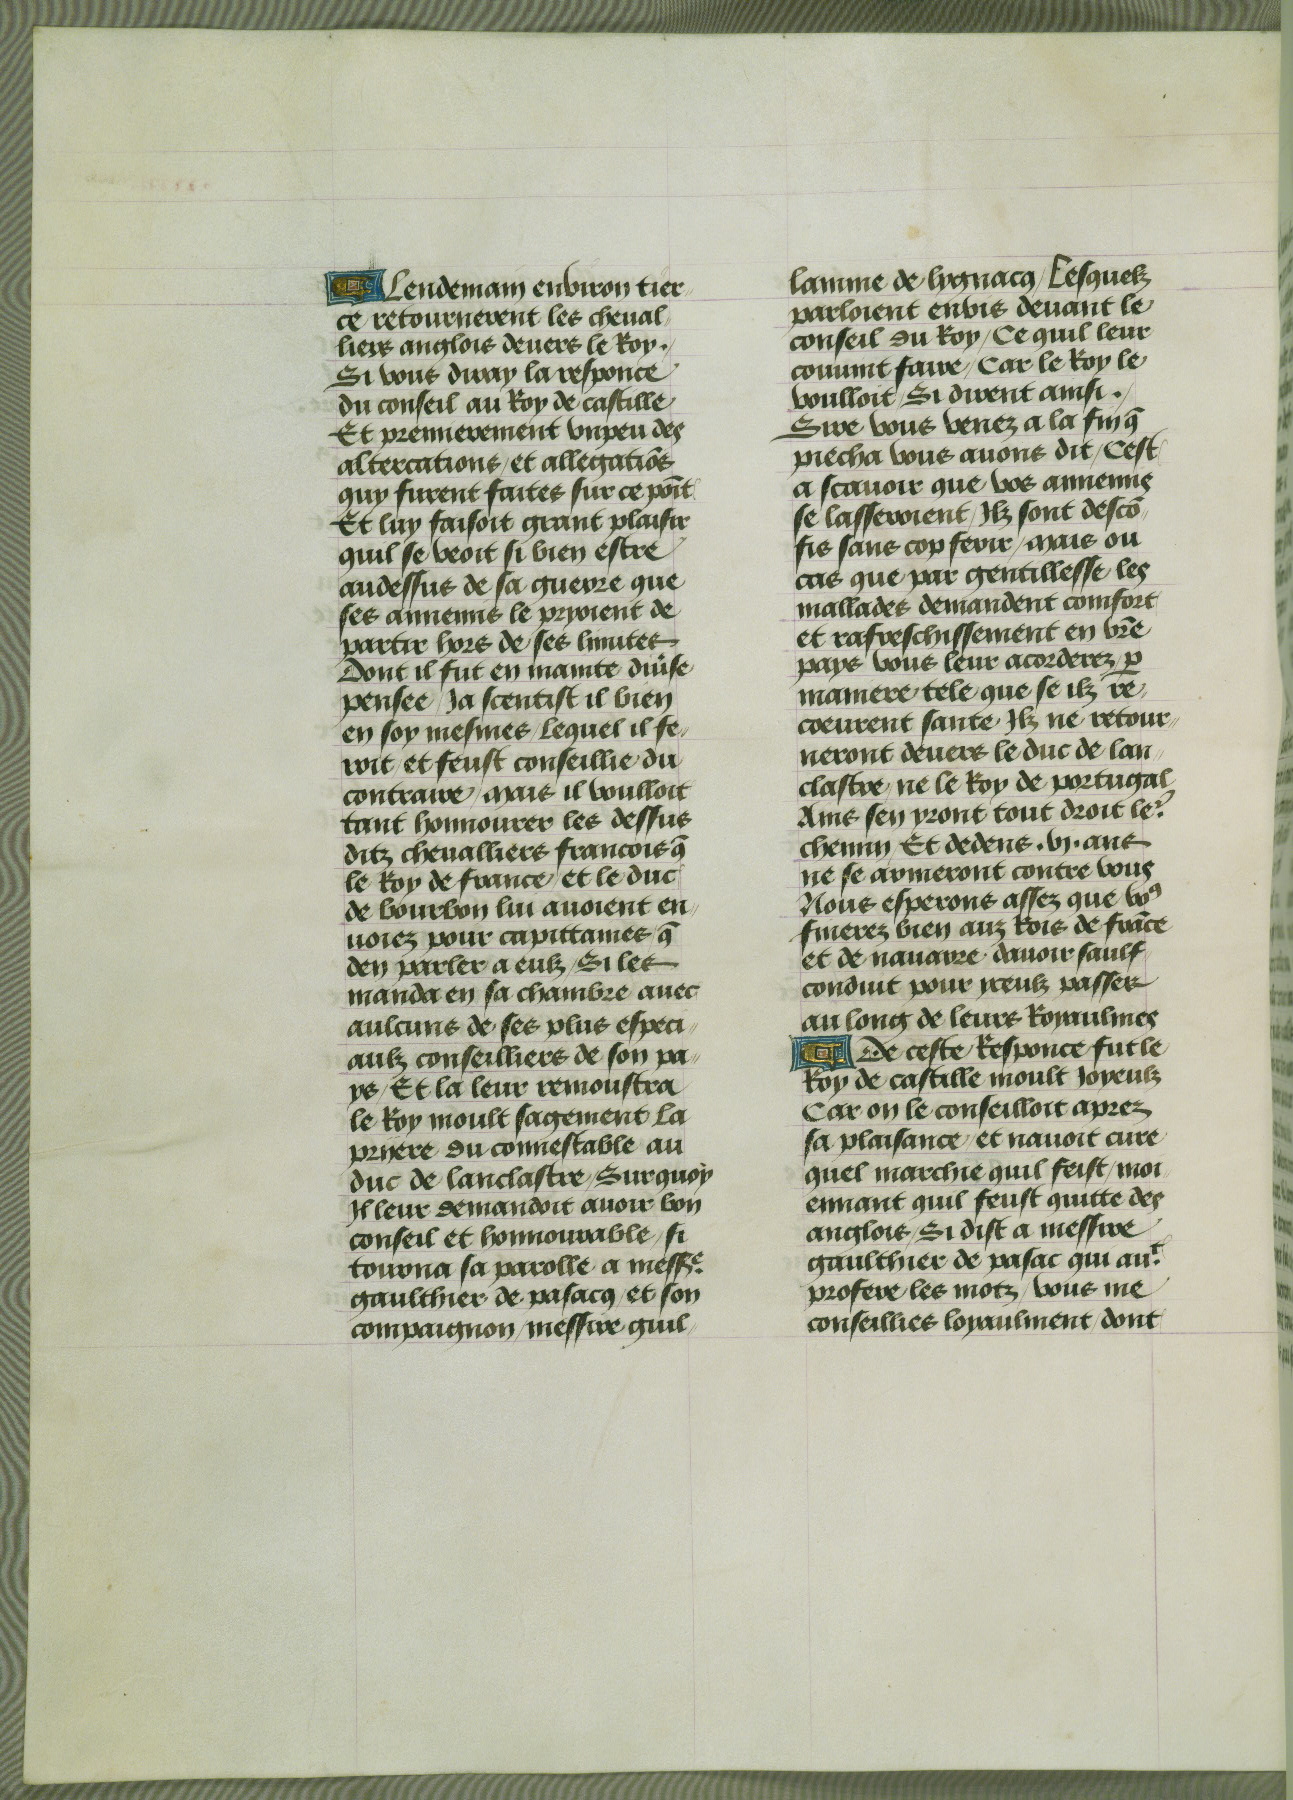 Lendemain environ tier
ce retournerent les cheval
liers anglois devers le Roy.
Si vous diray la responce
du conseil au Roy de castille
Et premierement vnpeu des
altercations / et allegatiōs
quy furent faites sur ce poīt
Et luy faisoit grant plaisir
quil se veoit si bien estre
audessus de sa guerre que
ses annemis le pryoient de
partir hors de ses limites
Dont il fut en mainte diũse
pensee / Ja scentist il bien
en soy mesmes / lequel il fe
roit / et feust conseillie du
contraire / mais il voulloit
tant honnourer les dessus
ditz chevalliers francois q̄
le Roy de france / et le duc
de bourbon lui avoient en
uoiez pour capittaines / q̄
den parler a eulz / Si les
manda en sa chambre avec
aulcuns de ses plus especi
aulz conseilliers de son pa
ys / Et la leur remonstra
le Roy moult sagement la
pryere du connestable au
duc de lanclastre / Surquoy
Il leur demandoit avoir bon
conseil et honnourable / si
tourna sa parolle a messe.
gaulthier de pasacq / et son
compaignon / messire guil
lamme de lygnacq / Lesquelz
parloient envis devant le
conseil du Roy / Ce quil leur
couuint faire / Car le Roy le
voulloit / Si dirent ainsi .
Sire vous venez a la fin q̄
piecha vous avons dit / Cest
a scavoir que vos annemis
se lasseroient / Ilz sont descō
fis sans cop ferir / mais ou
cas que par gentillesse les
mallades demandent comfort
et rafreschissement en vr̄e
pays vous leur acorderez p
maniere tele que se ilz re
coeurent sante Ilz ne retour
neront devers le duc de lan
clastre / ne le Roy de portugal
Ains sen yront tout droit le.r
chemin Et dedens .vj. ans
ne se armeront contre vous
Nous esperons assez que vo9
finerez bien auz Rois de frāce
et de navarre davoir sauf
conduit pour yceulz passer
au long de leurs Royaulmes
De ceste Responce fut le
Roy de castille moult Joyeulz
Car on le conseilloit aprez
sa plaisance / et navoit cure
quel marchie quil feist / moi
ennant quil feust quitte des
anglois / Si dist a messire
gaulthier de pasac qui au.t
profere les motz / vous me
conseillies loyaulment / dont